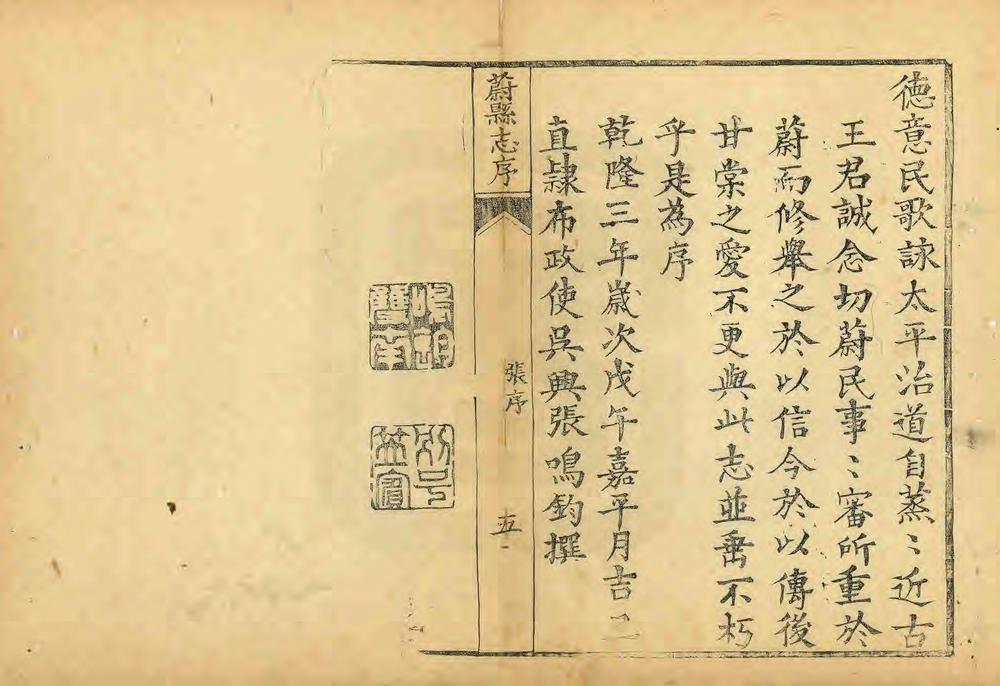 德意民歌詠太平治道自蒸〻近古
王君誠念切蔚民事〻審所重於
蔚而修舉之於以信今於以傳後
甘棠之愛不更與此志並垂不朽
乎是為序
乾隆三年歲次戊午嘉平月吉
直隸布政使吳興張鳴鈞撰
蔚縣志序
張序
五